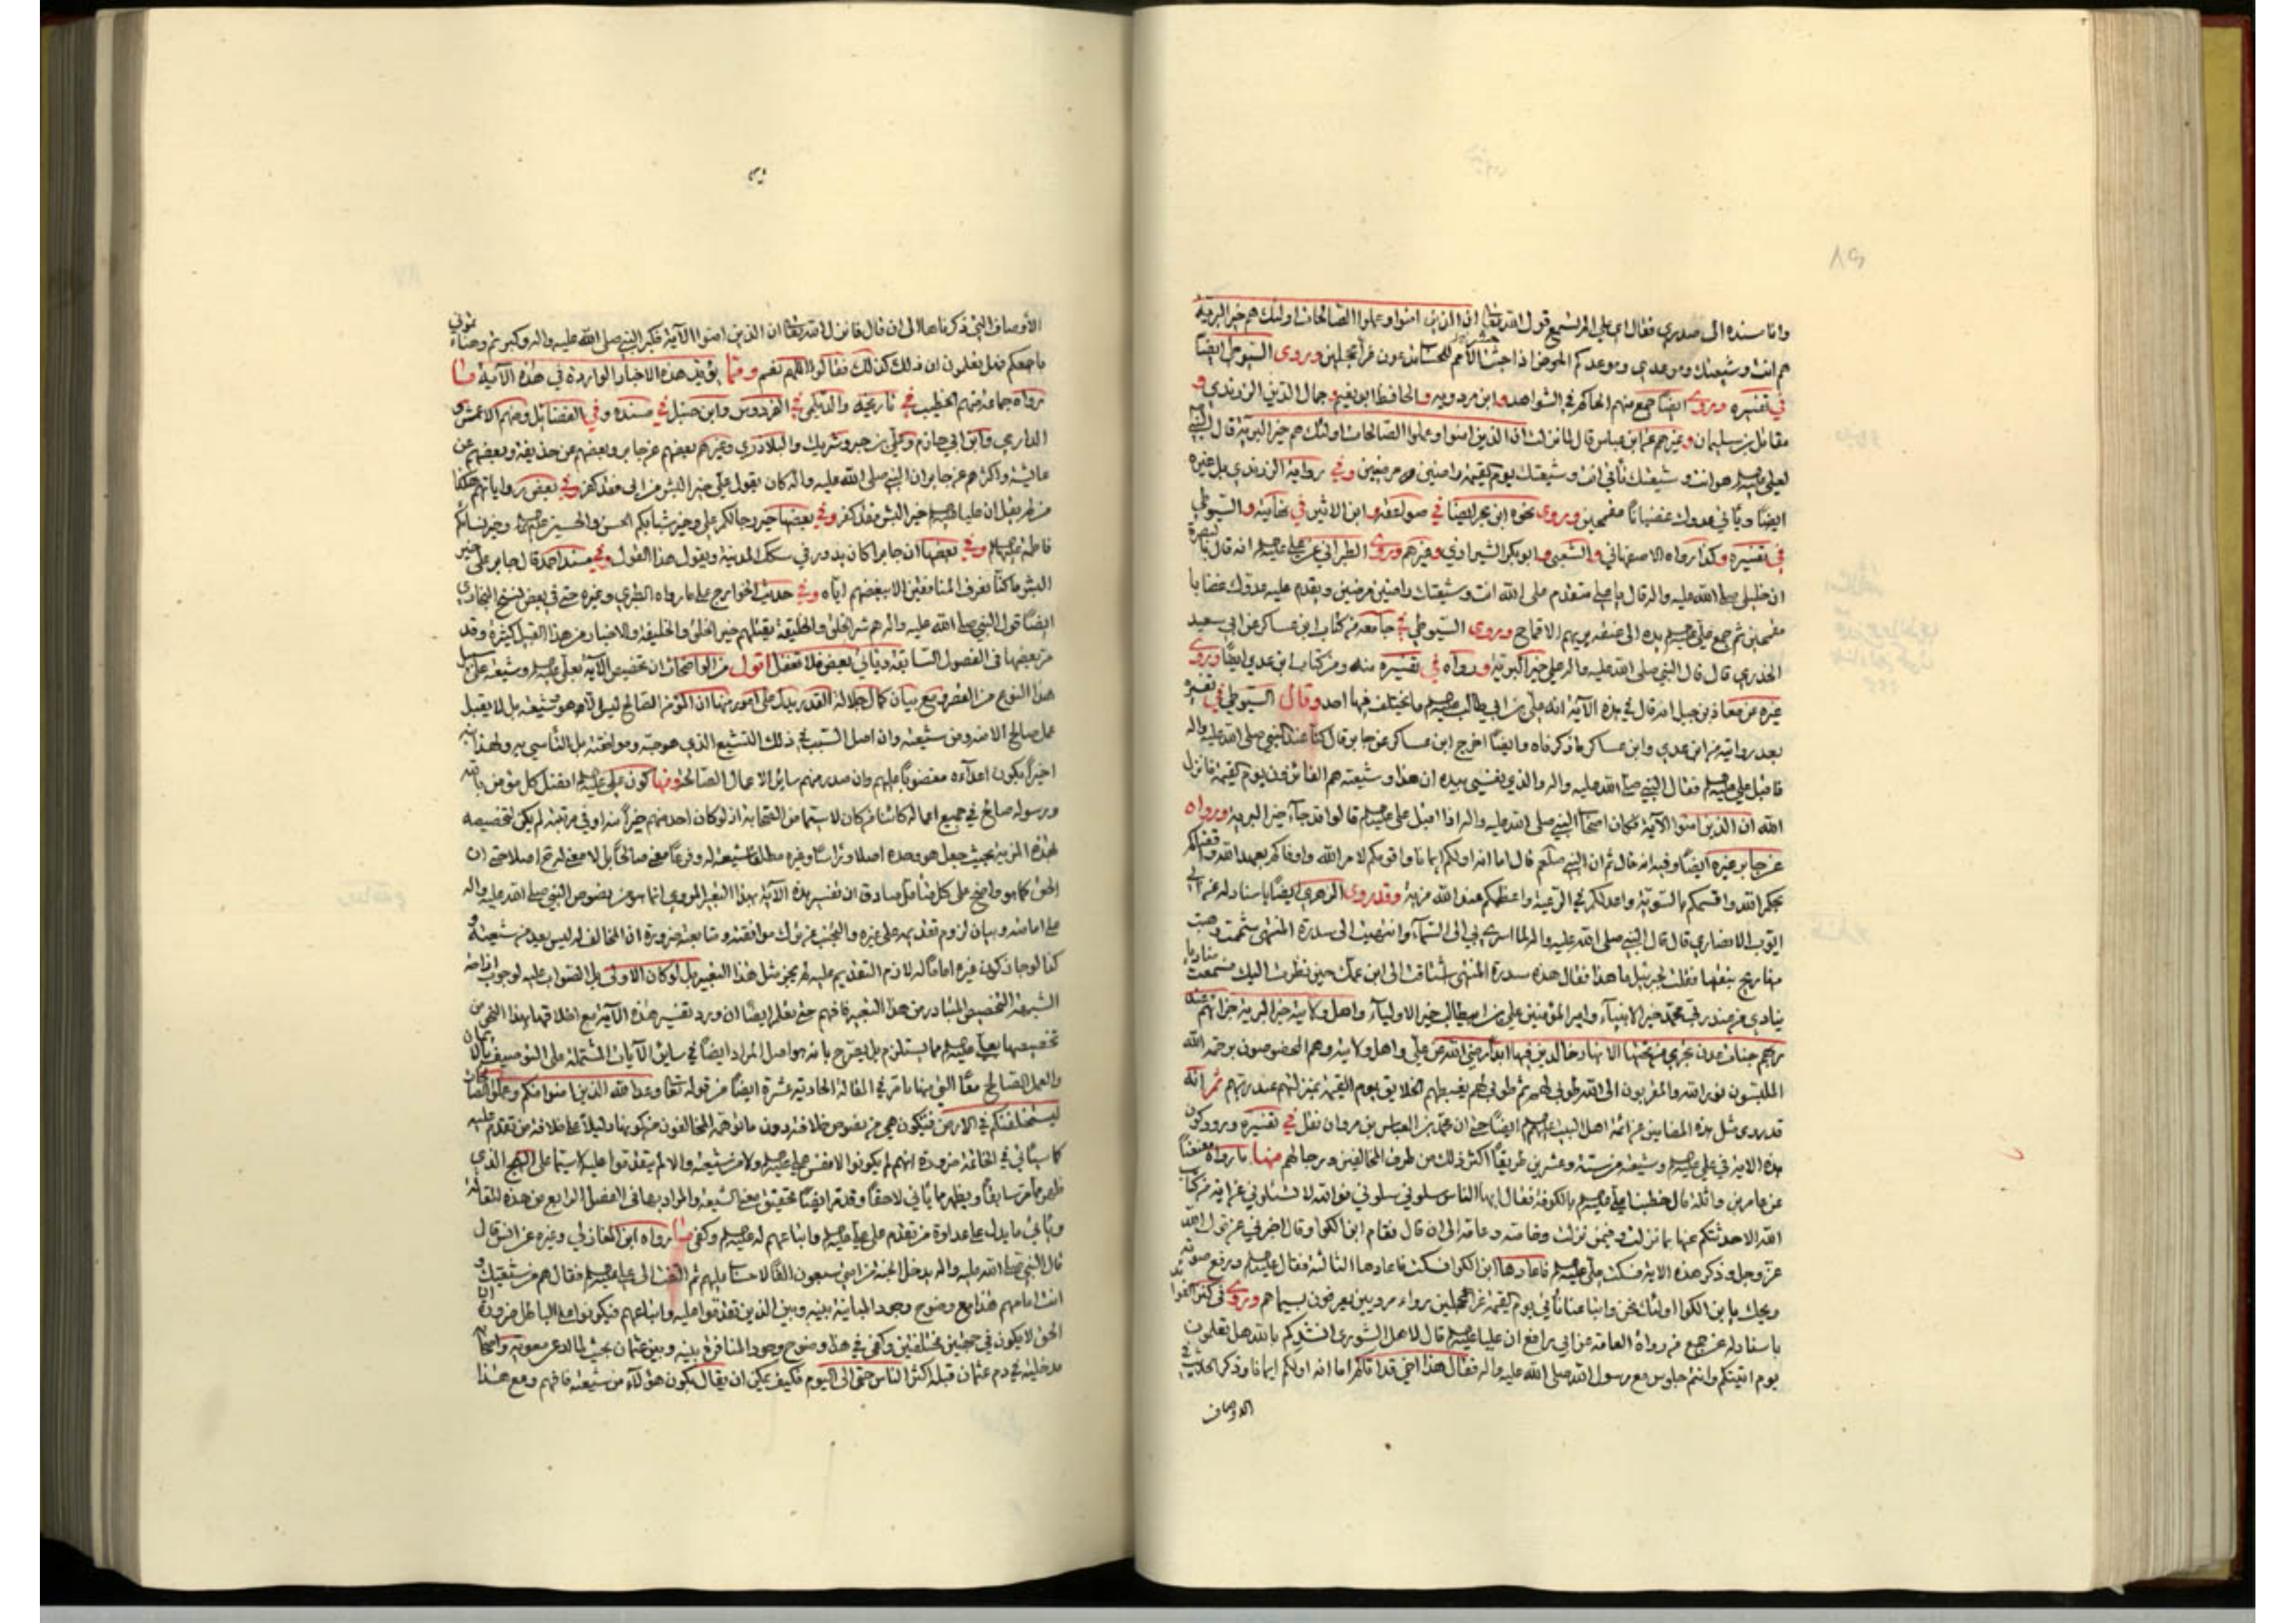 وانا مسنده الى صدري فقال اي علي الم تسمع قول الله تعالى ان الذين امنوا وعملوا الصالحات اولئك هم خير البرية
هم انت وشيعتك وموعدي وموعدكم الحوض اذا جئت الأمم للحساب تدعون غرا محجلين وروى السيوطي ايضا
في تفسيره وروى ايضا جمع منهم الحاكم في الشواهد وابن مردويه والحافظ ابو نعيم وجمال الدين الزرندي و
مقاتل بن سليمان وغيرهم عن ابن عباس قال لما نزلت ان الذين امنوا وعملوا الصالحات اولئك هم خير البرية قال النبي
لعلي هو انت وشيعتك تأتي انت وشيعتك يوم القيمة راضين مرضيين وفي رواية الزرندي بل غيره
ايضا ويأتي عدوك غضبانا مقمحين وروى نحوه ابن حجر ايضا في صواعقه وابن الاثير في نهايته والسيوطي
في تفسيره وكذا رواه الاصفهاني والشعبي وابو بكر الشيرازي وغيرهم وروى الطبراني عن علي عليه السلام انه قال بالبصرة
ان خليلي صلى الله عليه واله قال يا علي ستقدم على الله انت وشيعتك راضين مرضيين ويقدم عليه عدوك غضابا
مقمحين ثم جمع علي عليه السلام يده الى عنقه يريهم الاقماح وروى السيوطي في جامعه من كتاب ابن عساكر عن ابي سعيد
الخدري قال قال النبي صلى الله عليه واله علي خير البرية ورواه في تفسيره منه ومن كتاب ابن عدي ايضا وروى
غيره عن معاذ بن جبل انه قال في هذه الآية انه علي بن ابي طالب عليه السلام ما يختلف فيها احد وقال السيوطي في تفسيره
بعد روايته من ابن عدي وابن عساكر ما ذكرناه وايضا اخرج ابن عساكر عن جابر قال كنا عند النبي صلى الله عليه واله
فاقبل علي عليه السلام فقال النبي صلى الله عليه واله والذي نفسي بيده ان هذا وشيعته هم الفائزون يوم القيمة فانزل
الله ان الذين امنوا الآية فكان اصحاب النبي صلى الله عليه واله اذا اقبل علي عليه السلام قالوا قد جاء خير البرية ورواه
عن جابر غيره ايضا وفيه انه قال ثم ان النبي صلعم قال اما انه اولكم ايمانا واقومكم لامر الله واوفاكم بعهد الله واقضاكم
بحكم الله واقسمكم بالسوية واعدلكم في الرعية واعظمكم عند الله مزية وقد روى الزهري ايضا باسناد له عن ابي
ايوب الانصاري قال قال النبي صلى الله عليه واله لما اسري بي الى السماء وانتهيت الى سدرة المنتهى شممت وهبت
منها ريح نبقها فقلت لجبرئيل ما هذا فقال هذه سدرة المنتهى اشتاقت الى ابن عمك حين نظرت اليك فسمعت مناديا
ينادي من عند ربي محمد خير الانبياء وامير المؤمنين علي بن ابيطالب خير الاولياء واهل ولايته خير البرية جزاؤهم عند
ربهم جنات عدن تجري من تحتها الانهار خالدين فيها ابدا رضي الله عن علي واهل ولايته وهم المخصوصون برحمة الله
الملبسون نور الله والمقربون الى الله طوبى لهم ثم طوبى لهم يغبطهم الخلايق يوم القيمة بمنزلتهم عند ربهم ثم انه
قد روى مثل هذه المضامين عن ائمة اهل البيت عليهم السلام ايضا حتى ان محمد بن العباس بن مروان نقل في تفسيره ورود كون
هذه الاية في علي عليه السلام وشيعته من ستة وعشرين طريقا اكثر ذلك من طرق المخالفين ورجالهم منها ما رواه معنعنا
عن عامر بن واثلة قال خطبنا علي عليه السلام بالكوفة فقال ايها الناس سلوني سلوني فوالله لا تسئلوني عن اية من كتاب
الله الا حدثتكم عنها بما نزلت وفيمن نزلت وخاصة وعامة الى ان قال فقام ابن الكوا وقال اخبرني عن قول الله
عز وجل وذكر هذه الاية فسكت علي عليه السلام فاعادها ابن الكوا فسكت فاعادها الثالثة فقال عليه السلام ورفع صوته
ويحك يا بن الكوا اولئك نحن واتباعنا نأتي يوم القيمة غرا محجلين رواء مرويين يعرفون بسيماهم وروى في
باسناد له عن جمع من رواة العامة عن ابي رافع ان عليا عليه السلام قال لاهل الشورى انشدكم بالله هل تعلمون
يوم اتيتكم وانتم جلوس مع رسول الله صلى الله عليه واله فقال هذا اخي قد اتاكم اما انه اولكم ايمانا وذكر الحديث في
الاوصاف
الأوصاف التي ذكرناها الى ان قال فانزل الله تعالى ان الذين امنوا الآية فكبر النبي صلى الله عليه واله وكبرتم وهنأتموني
باجمعكم فهل تعلمون ان ذلك كذلك فقالوا اللهم نعم ومما يؤيد هذه الاخبار الواردة في هذه الآية ما
رواه جماعة منهم الخطيب في تاريخه والديلمي في الفردوس وابن حنبل في مسنده وفي الفضائل ومنهم الاعمش و
الداري وابن ابي حازم وعلي بن وشريك والبلاذري وغيرهم بعضهم عن جابر وبعضهم عن حذيفة وبعضهم عن
عايشة واكثرهم عن جابر ان النبي صلى الله عليه واله كان يقول علي خير البشر من ابى فقد كفر وفي بعض رواياتهم هكذا
من لم يقل ان عليا خير البشر فقد كفر وفي بعضها خير رجالكم علي وخير شبابكم الحسن والحسين عليهما السلام وخير نسائكم
فاطمة عليها السلام وفي بعضها ان جابرا كان يدور في سكك المدينة ويقول هذا القول وفي مسند احمد قال جابر علي خير
البشر ما كنا نعرف المنافقين الا ببغضهم اياه وفي حديث الخوارج على ما رواه الطبري وغيره حتى في بعض نسخ البخاري
ايضا قول النبي صلى الله عليه واله هم شر الخلق والخليقة يقتلهم خير الخلق والخليقة والاخبار من هذا القبيل كثيرة وقد
مر بعضها في الفصول السابقة ويأتي بعض فلا تغفل اقول من الواضحات ان تخصيص الآية بعلي عليه السلام وشيعته على سبيل
هذا النوع من الحصر مع بيان كمال جلالة القدر يدل على امور منها ان المؤمن الصالح ليس الا هو وشيعته بل لا يقبل
عمل صالح الا منه ومن شيعته وان اصل السبب في ذلك التشيع الذي هو حبه وموافقته بل التأسي به ولهذا
اخيرا يكون اعداءه مغضوبا عليهم وان صدر منهم ساير الاعمال الصالحة ومنها كون علي عليه السلام افضل كل مؤمن بالله
ورسوله صالح في جميع اعماله كائنا من كان لا سيما من الصحابة اذ لو كان احد منهم خيرا منه او في مرتبته لم يكن لتخصيصه
بهذه المزية بحيث جعل هو وحده اصلا وغيره مطلقا شيعة له وفرعا معنى صالحا بل لا معنى له تم اصلا حتى ان
الحق كما هو واضح على كل متأمل صادق ان تفسير هذه الآية بهذا التعبير المروي انما هو من نصوص النبي صلى الله عليه واله
على امامته وبيان لزوم تقديمه على غيره والتجنب عن ترك موافقته ومتابعته ضرورة ان المخالف له ليس يعد من شيعته و
كذا لو جاز كون غيره اماما له لازم التقديم عليه لم يجز مثل هذا التعبير بل لو كان الاولى بل الصواب عليه لوجوب
الشيعة التخصيص المتبادر من هذا التعبير فافهم حتى تعلم ايضا ان ورد تفسير هذه الآية مع اطلاقها بهذا النهج من
تخصيصها بعلي عليه السلام مما يستلزم بل يصرح بانه هو اصل المراد ايضا في ساير الآيات المشتملة على التوصيف بالايمان
والعمل الصالح معا التي منها ما مر في المقالة الحادية عشرة ايضا من قوله تعالى وعد الله الذين امنوا منكم وعملوا الصالحات
ليستخلفنكم في الارض فتكون هي من نصوص خلافته دون ما توهمه المخالفون من كونها دليلا على خلافة من تقدم عليه
كما سيأتي في الخاتمة ضرورة انهم لم يكونوا لا نفس علي عليه السلام ولا من شيعته والا لم يتقدموا عليه لا سيما على النهج الذي
ظهر مما مر سابقا ويظهر مما يأتي لاحقا وقد مر ايضا تحقيق معنى الشيعة والمراد بها في الفصل الرابع من هذه المقالة
ويأتي ما يدل على عداوة من تقدم على علي عليه السلام واتباعهم له عليه السلام وكفى ما رواه ابن المغازلي وغيره عن انس قال
قال النبي صلى الله عليه واله يدخل الجنة من امتي سبعون الفا لا حساب عليهم ثم التفت الى علي عليه السلام فقال هم من شيعتك و
انت امامهم هذا مع وضوح وجود المباينة بينه وبين الذين تقدموا عليه واتباعهم فيكونون اهل الباطل ضرورة ان
الحق لا يكون في جهتين مختلفتين وكفى في هذا وضوح وجود المنافرة بينه وبين عثمان بحيث لما ادعى معوية واصحابه
مدخليته في دم عثمان قبله اكثر الناس حتى الى اليوم فكيف يمكن ان يقال بكون هؤلاء من شيعته فافهم ومع هذا